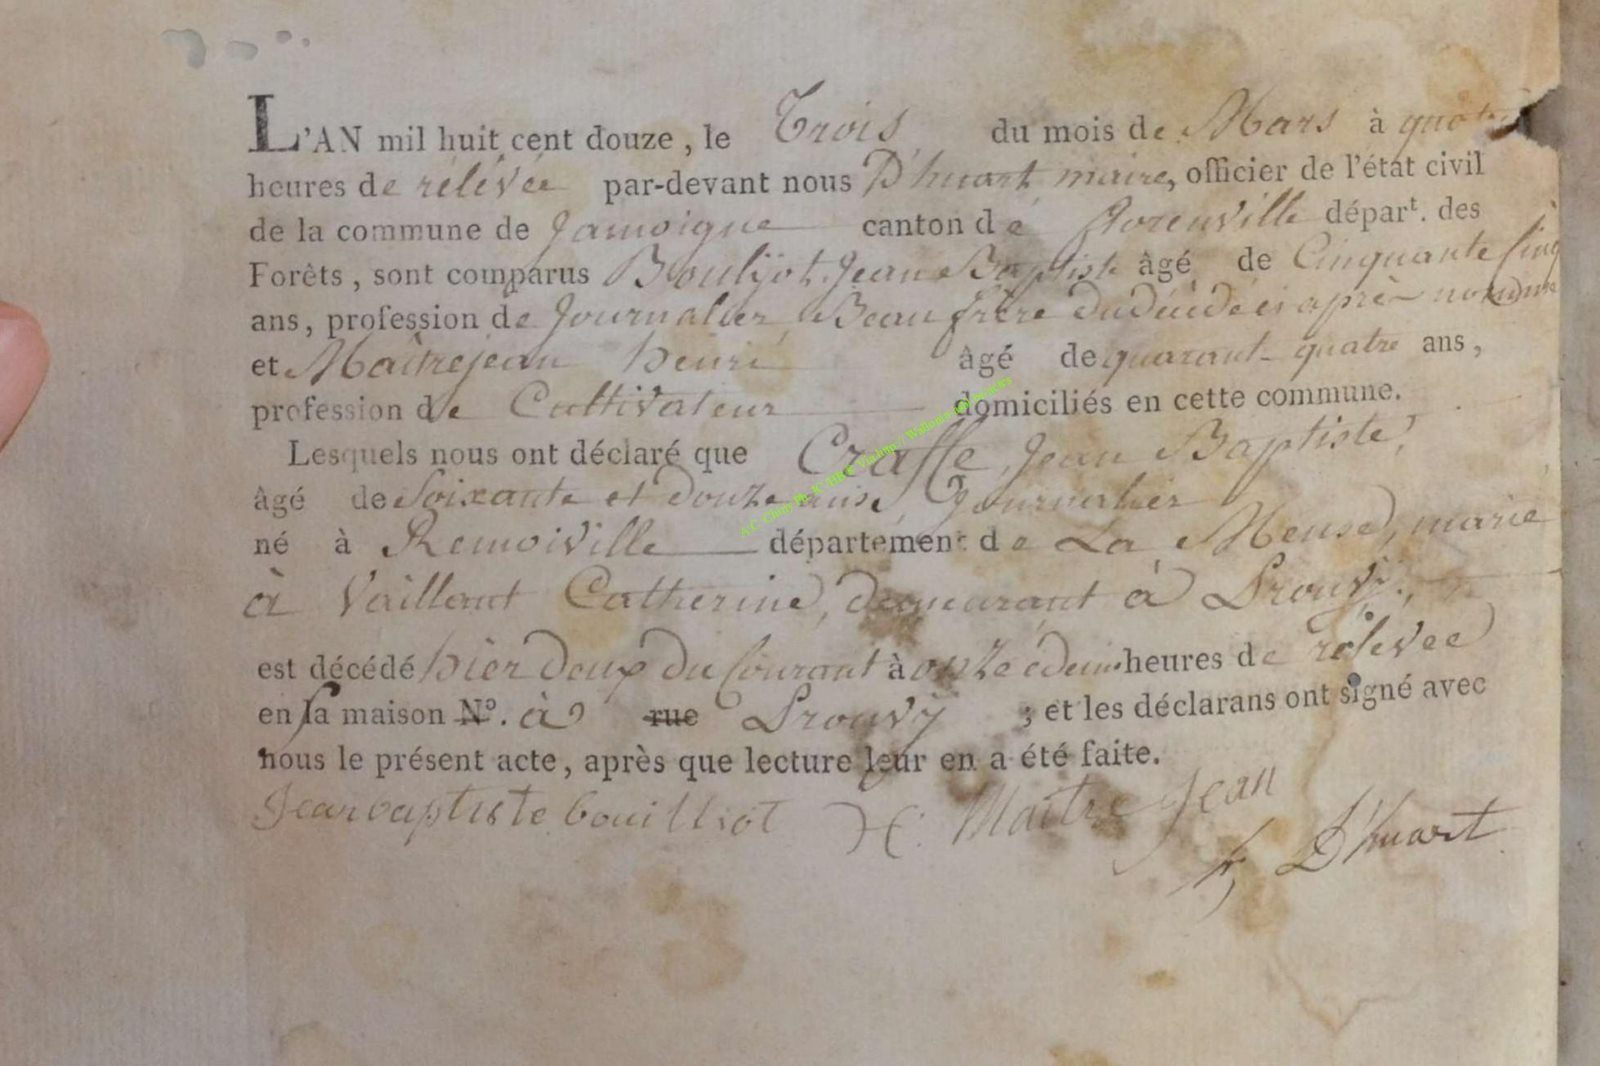 L'AN mil huit cent douze, le Trois du mois de Mars à quatre
heures de rélévée par-devant nous D'huart maire, officier de l'état civil
de la commune de Jamoigne canton de florenville départ. des
Forêts, sont comparus Boulijot Jean Baptiste âgé de Cinquante Cinq
ans, profession de Journalier Beau frère du décédé ci après nommé
et Maitrejean henri âgé de quarant quatre ans,
profession de Cultivateur domiciliés en cette commune.
Lesquels nous ont déclaré que Crasse, Jean Baptiste,
âgé de Soixante et douze ans, Journalier
né à Remoiville département de La Meuse, marié
à Vaillant Catherine, demeurant à Prouvy,
est décédé hier deux du Courant à onze edemi heures de rélevée
en sa maison N°. à rue Prouvy ; et les déclarans ont signé avec
nous le présent acte, après que lecture leur en a été faite.
Jeanbaptiste bouilliot H. Maitre Jean
D'huart